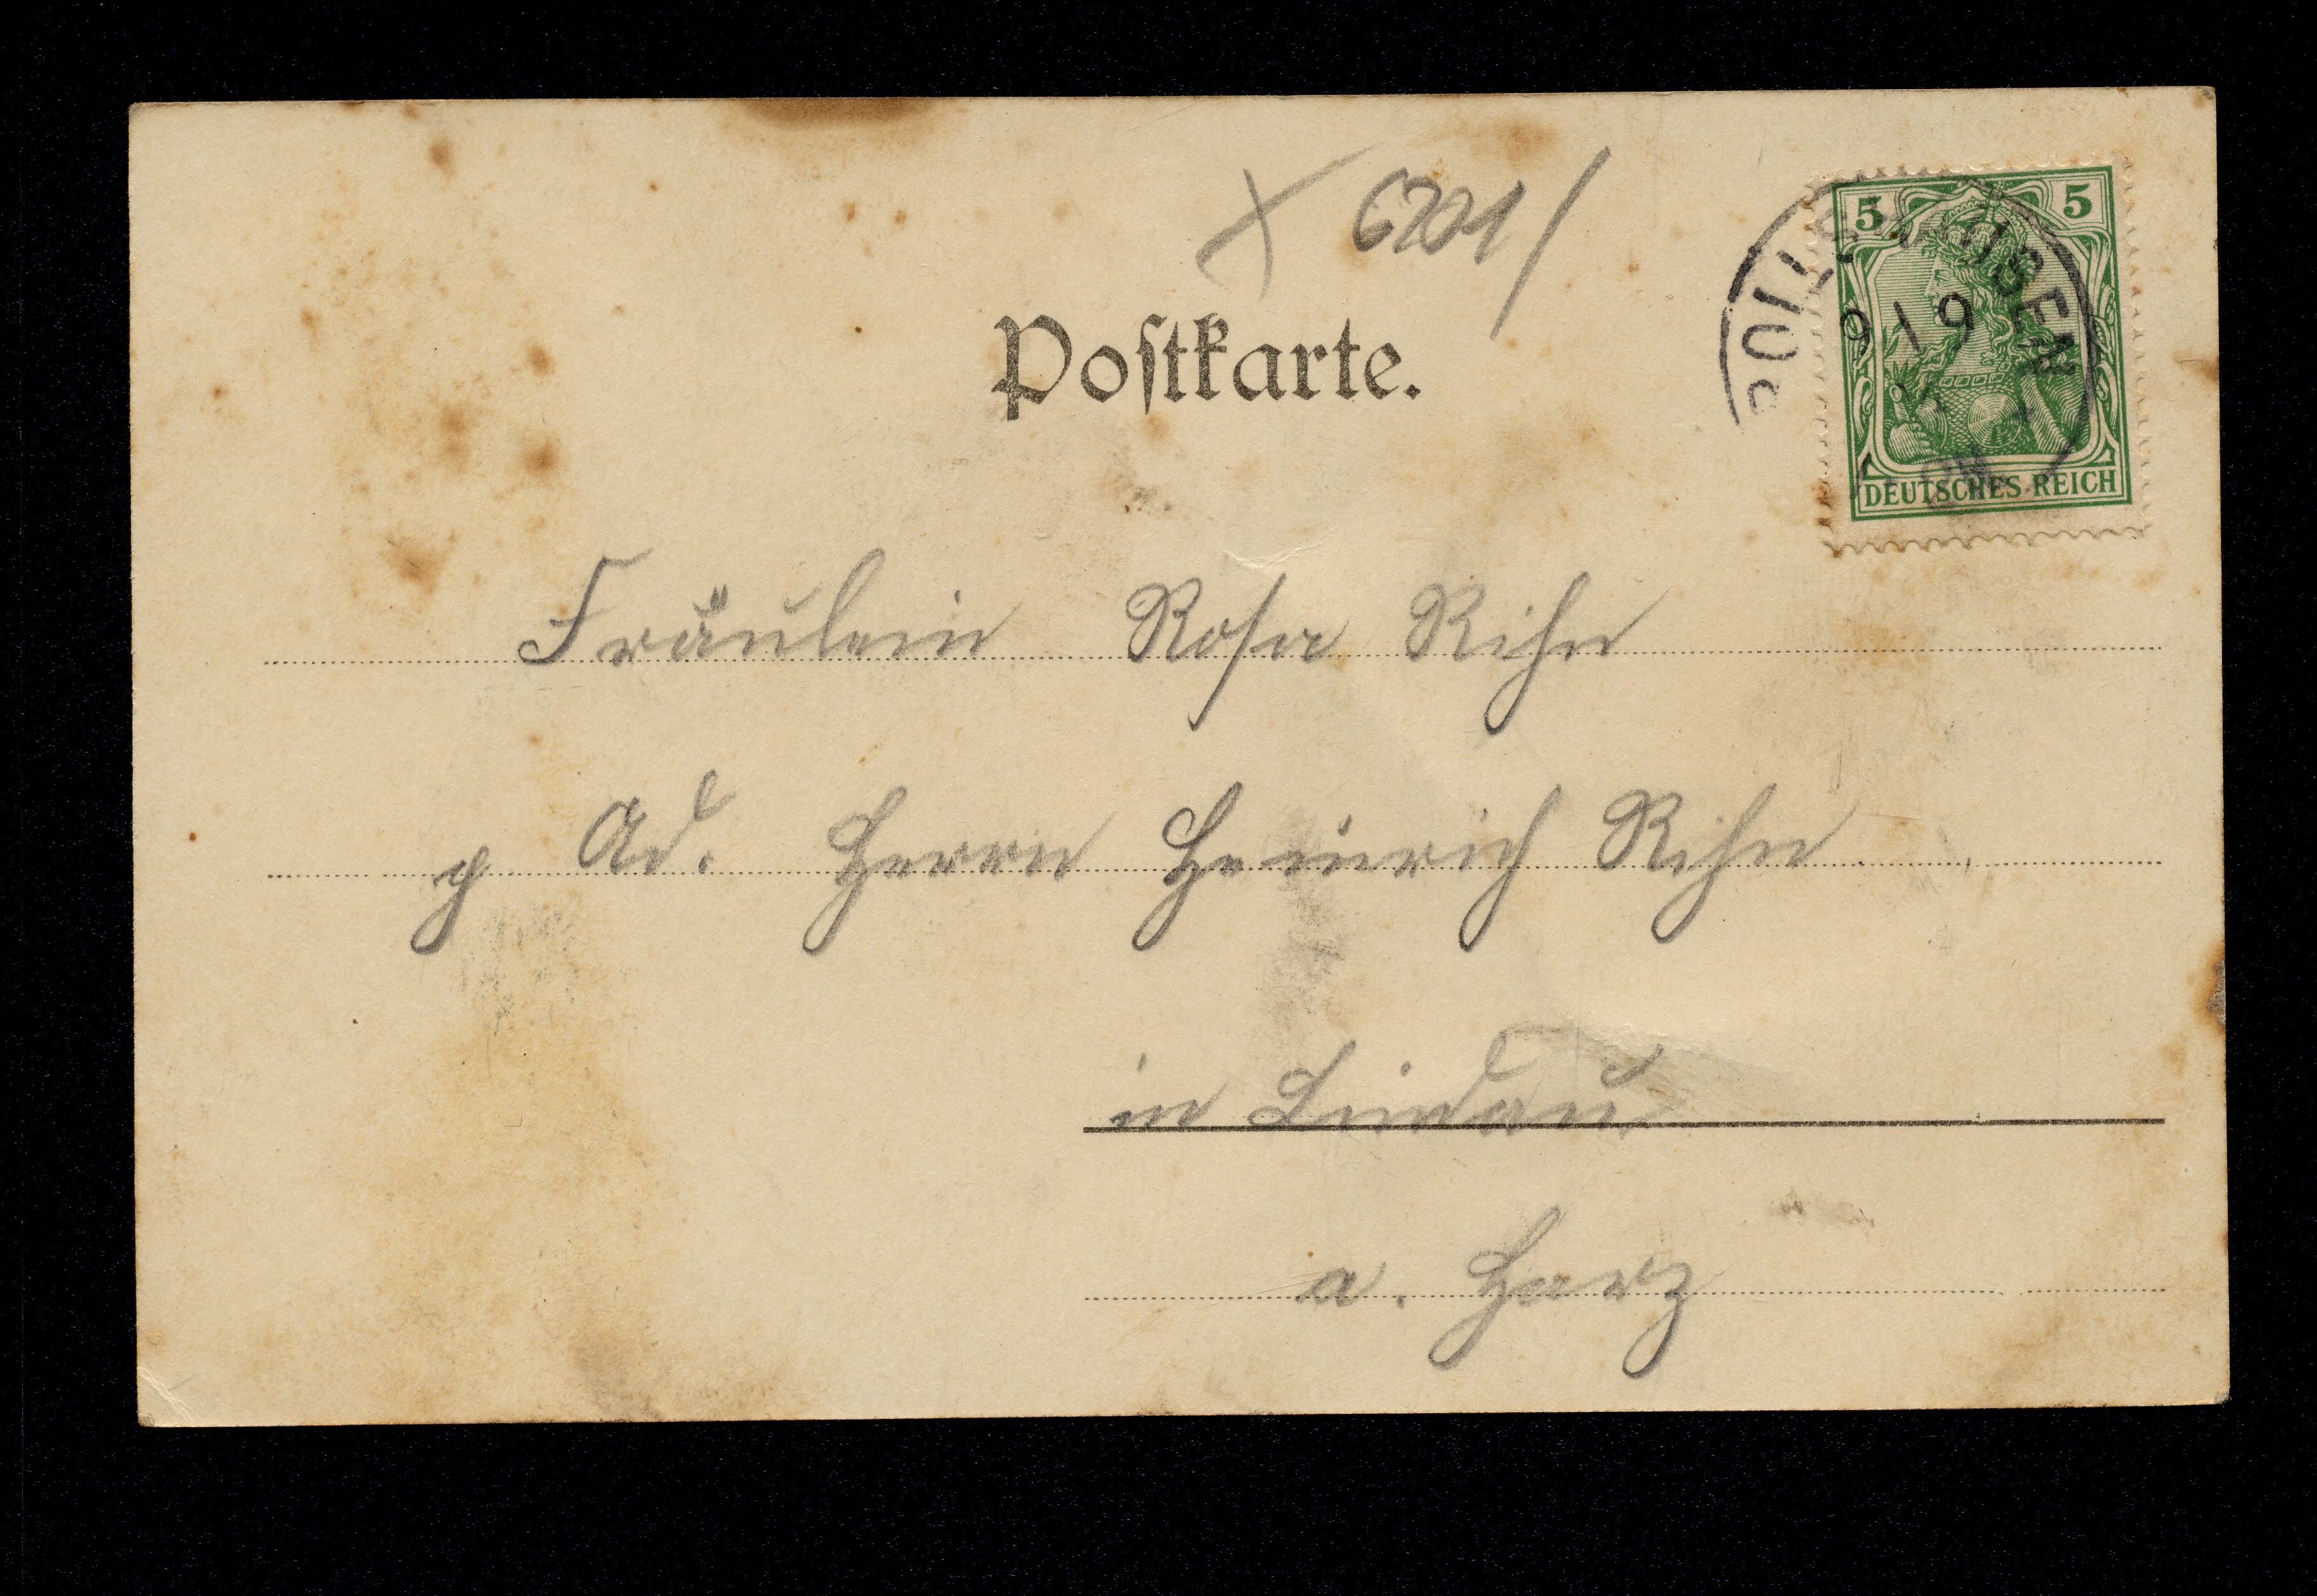 X 6201/
5 5
9 19
DEUTSCHES REICH
Postkarte.
Fräulein Rosa Rihn
p Ad. Herrn Heinrich Rihn
in Lindau
a. Harz